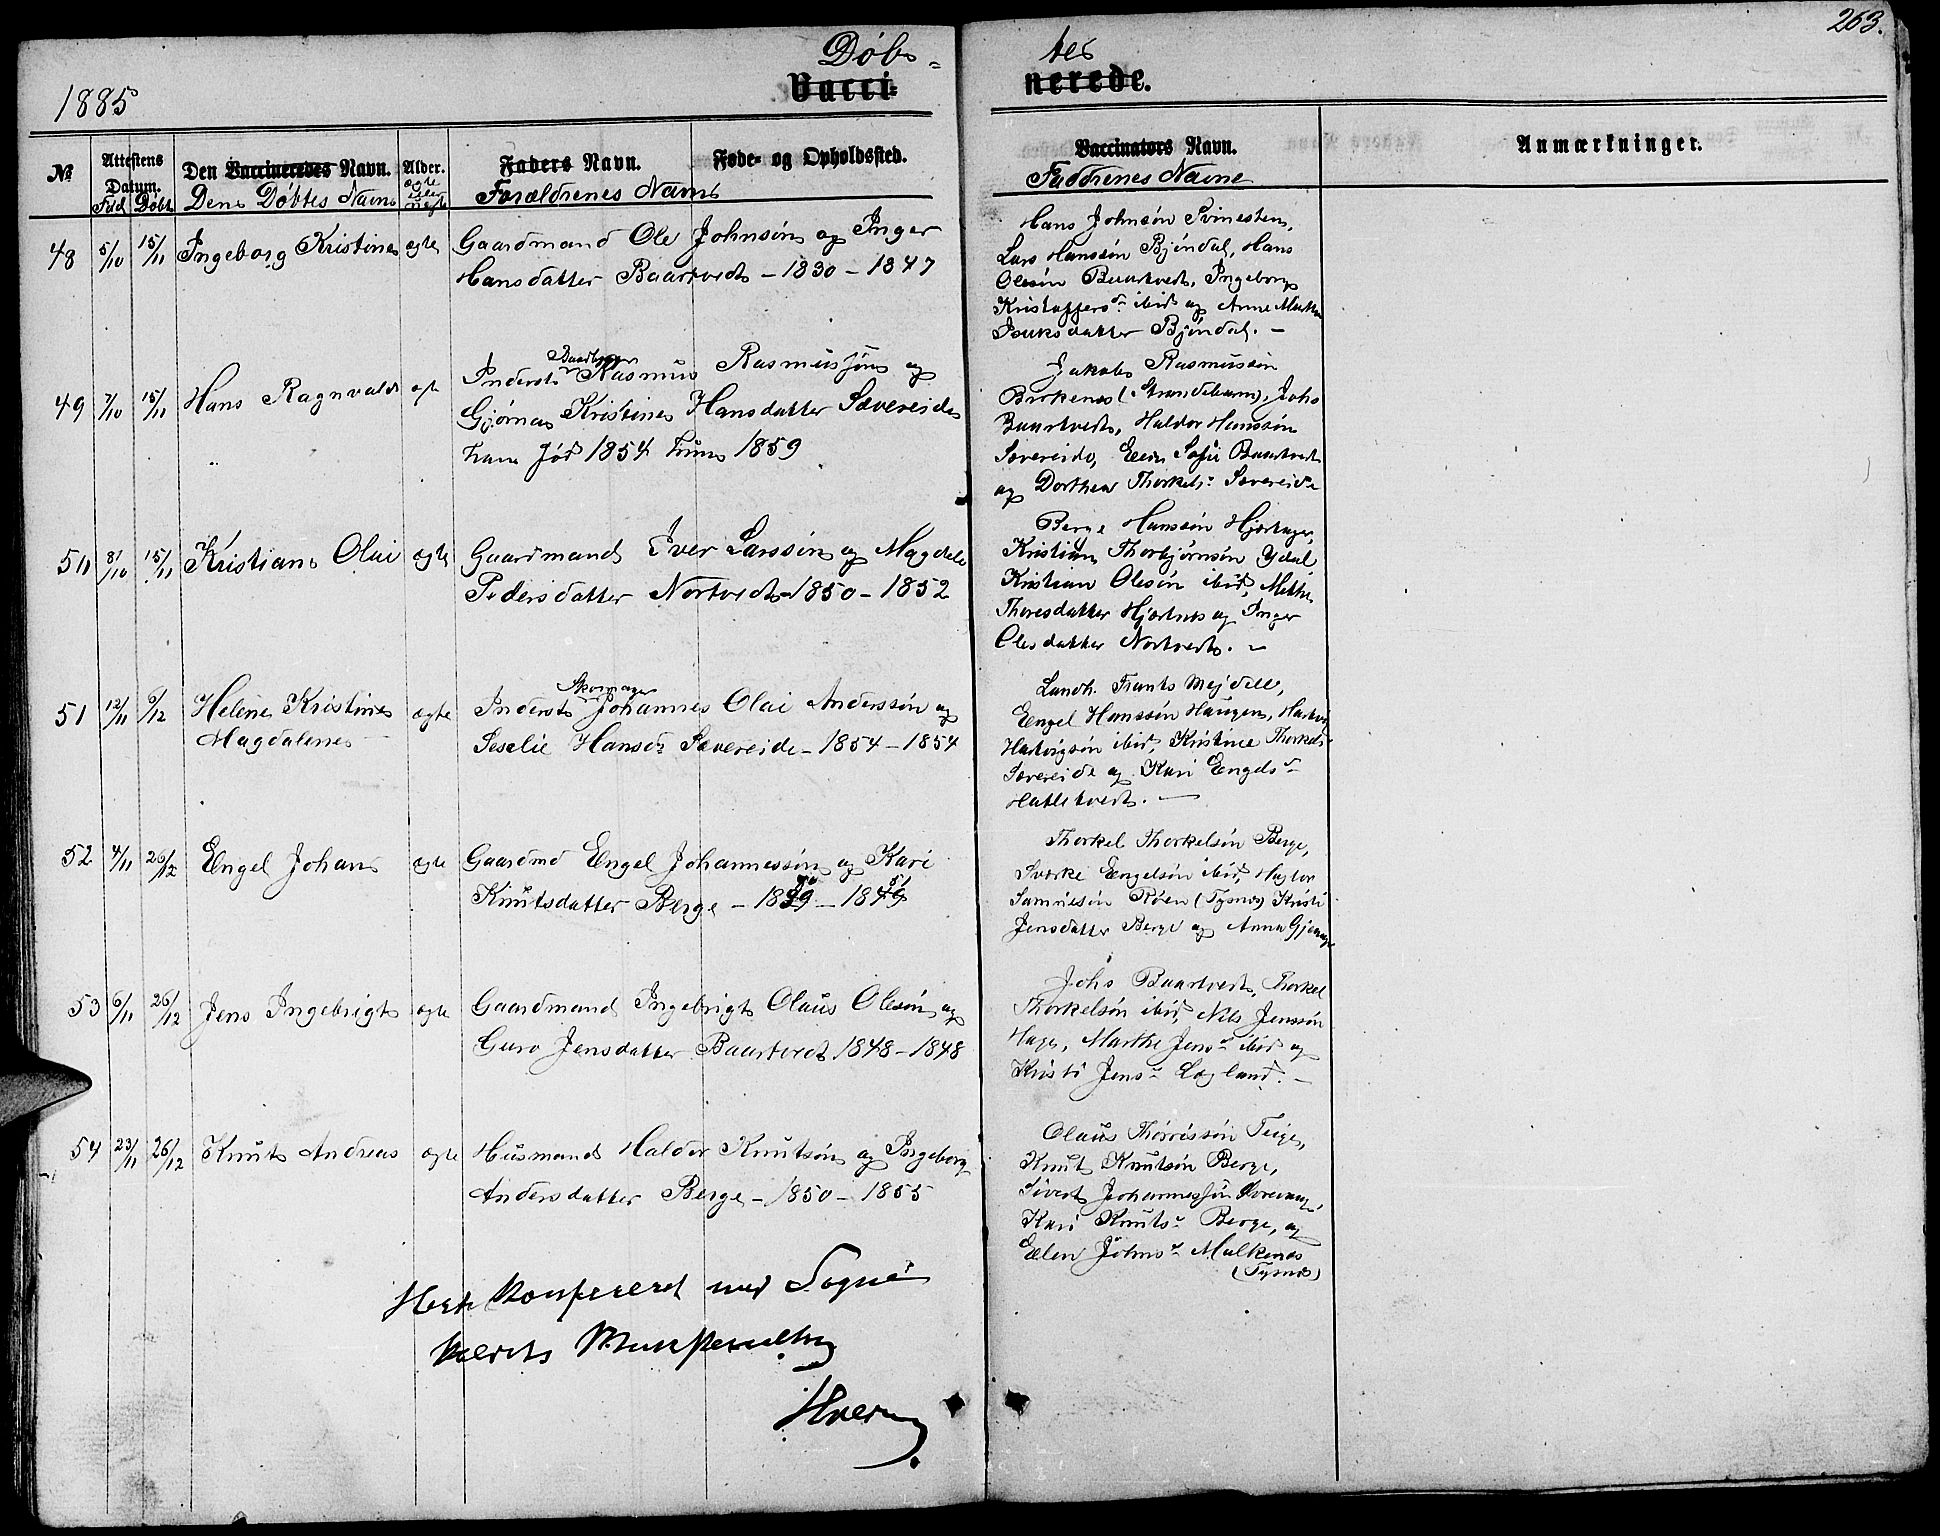 263.
1885
Døbe- tes
Vacci- nerede.
№ Attestens Datum. Den Vaccineredes Navn. Alder. Faders Navn. Føde- og Opholdssted. Vaccinators Navn. Anmærkninger.
Fød Døbt Den Døbtes Navn ægte Forældrenes Navne Faddrenes Navne
48 5/10 15/11 Ingeborg Kristine ægte Gaardmand Ole Johnsøn og Inger
Hansdatter Baartvedt – 1830 – 1847
Hans Johnsøn Svinesten,
Lars Hanssøn Bjöndal, Hans
Olesön Baartvedt, Ingeborg
Kristoffersd. ibid og Anne Marthe
Isaksdatter Bjöndal. –
49 7/10 15/11 Hans Ragnvald ægte Inderst Rasmus Rasmussøn og
Kristine Hansdatter Sævereide
han fød 1854 hun 1859
Jakob Rasmussøn
Birkenes (Strandebarm), Johs
Baartvedt, Haldor Hanssøn
Sævereide, Elen Sofie Baartvedt
og Dorthea Thorkels. Sævereide
50 8/10 15/11 Kristian Olai ægte Gaardmand Iver Larssön og Magdele
Pedersdatter Nortvedt – 1850 – 1852
Berge Hanssön
Kristian Thorbjørnsön Ydal
Kristian Olesön ibid, Methe
Thoresdatter Hjartnes og Inger
Olesdatter Nortvedt. –
51 12/11 6/12 Helene Kristine ægte Inderst Skomager Johannes Olai Anderssön og
Magdalene Seselie Hansd. Sævereide – 1854 – 1854
Landh. Frants Mejdell,
Engel Hanssøn Haugen, Hartvig
Hartvigsön ibid, Kristine Thorkels.
Sævereide og Kari Engelsd.
Hatlekvedt. –
52 4/11 26/12 Engel Johan ægte Gaardmd Engel Johannessön og Kari
Knutsdatter Berge
Thorkel Thorkelsön Berge,
Sverke Engelsön ibid,
Samuelsön Röen (Tysnes) Kristi
Jensdatter Berge og Anna
53 6/11 26/12 Jens Ingebrigt ægte Gaardmand Ingebrigt Olaus Olesön og
Guro Jensdatter Baartvedt 1848 – 1848
Johs Baartvedt, Thorkel
Thorkelsön ibid, Nils Jenssön
Hage, Marthe Jensd. ibid og
Kristi Jensd. Legland. –
54 23/11 26/12 Knut Andreas ægte Husmand Haldor Knutsön og Ingeborg
Andersdatter Berge – 1850 – 1855
Olaus Thorrissön Teige,
Knut Knutsön Berge,
Sivert Johannessön
Kari Knutsd. Berge, og
Elen Johnsd. Malkenes
(Tysnes)
Konfereret med Sogne